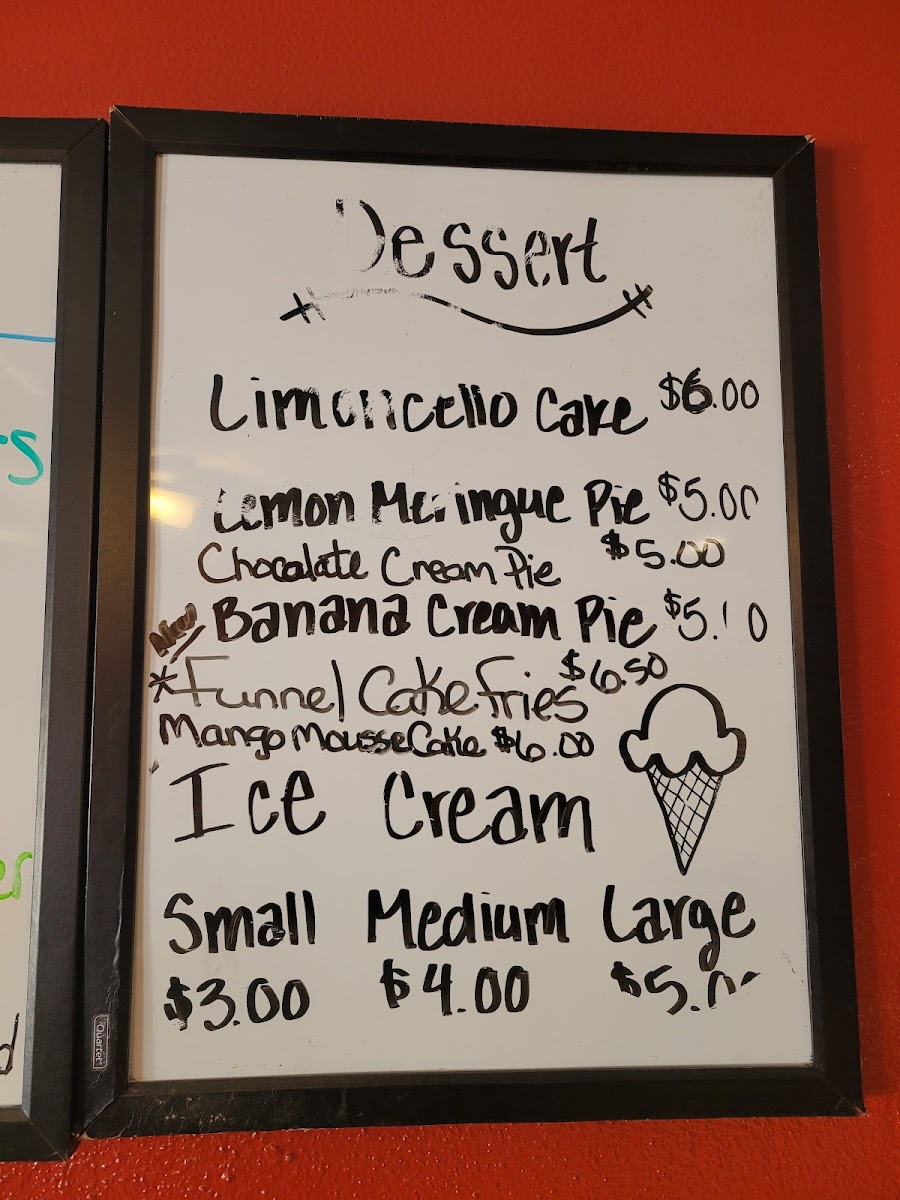 Dessert
Limoncello Cake $6.00
Lemon Meringue Pie $5.00
Chocolate Cream Pie $5.00
New Banana Cream Pie $5.00
*Funnel Cake Fries $6.50
Mango Mousse Cake $6.00
Ice Cream
Small Medium Large
$3.00 $4.00 $5.00
Quartet